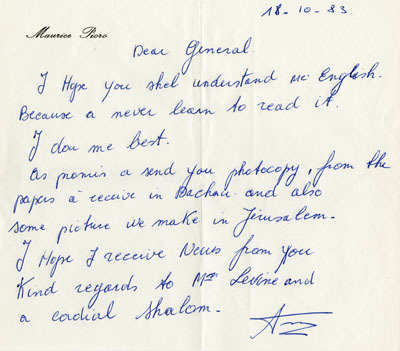 18-10-83
Maurice Pioro
Dear General
I Hope you shel understand mc English.
Because a never learn to read it.
I dou me best.
As promis a send you photocopy, from the
papers a receive in Dachau and also
some picture we make in Jérusalem.
I Hope I receive News from you
Kind regards to Mrs Levine and
a cordial Shalom.